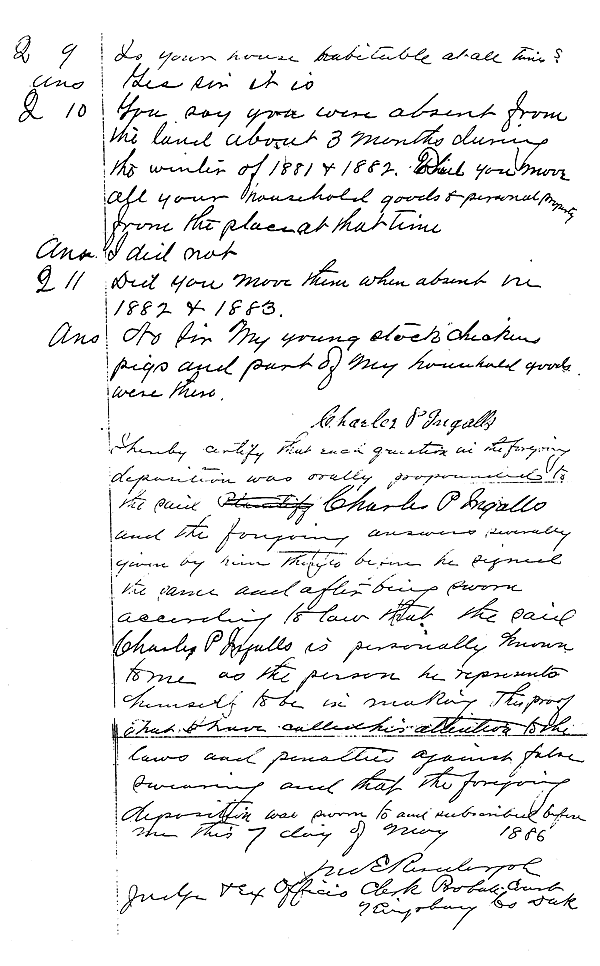 Q 9 Is your house habitable at all times?
Ans Yes sir it is
Q 10 You say you were absent from
the land about 3 months during
the winter of 1881 & 1882. Did you move
all your household goods & personal property
from the place at that time
Ans. I did not
Q 11 Did you move them when absent in
1882 & 1883.
Ans No Sir My young stock chickens
pigs and part of my household goods
were there.
Charles P Ingalls
I hereby certify that each question in the foregoing
deposition was orally propounded to
the said Plaintiff Charles P Ingalls
and the foregoing answers severally
given by him thereto before he signed
the same and after being sworn
according to law that the said
Charles P Ingalls is personally known
to me as the person he represents
himself to be in making this proof
that I have called his attention to the
laws and penalties against false
swearing and that the foregoing
deposition was sworn to and subscribed before
me this 7 day of May 1886
Judge & Ex Officio Clerk Probate Court
Kingsbury Co Dak